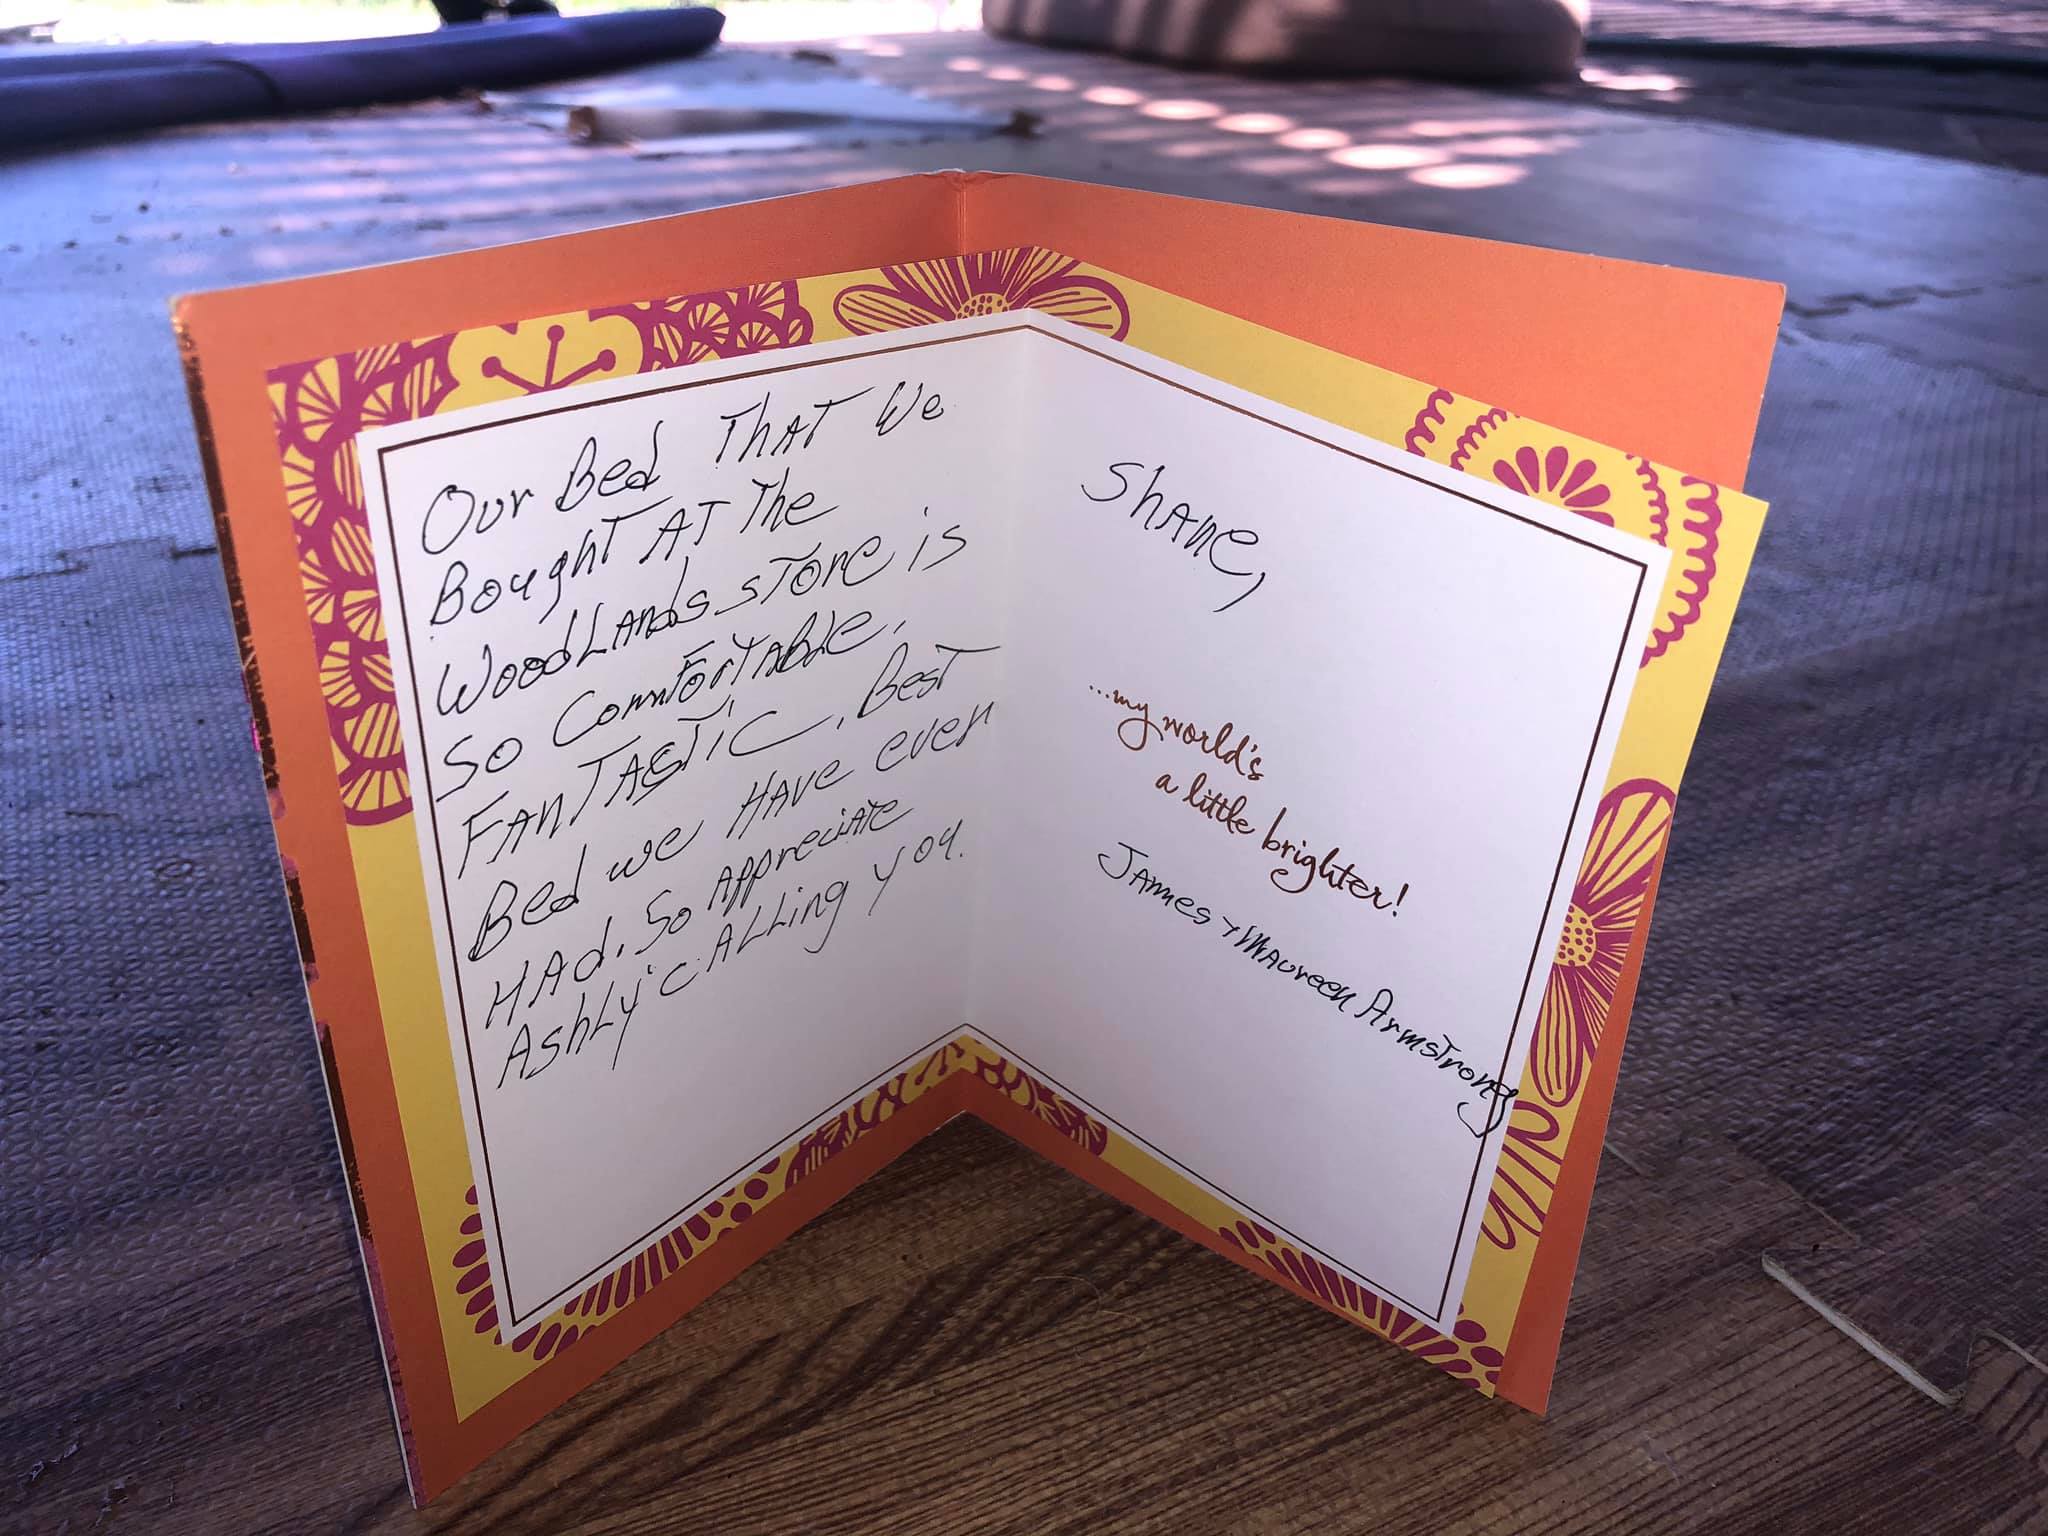 Our Bed That We
Bought At The
Woodlands store is
so Comfortable,
Fantastic, Best
Bed we have ever
Had. So appreciate
Ashly calling you.
Shane,
...my world's
a little brighter!
James + Maureen Armstrong